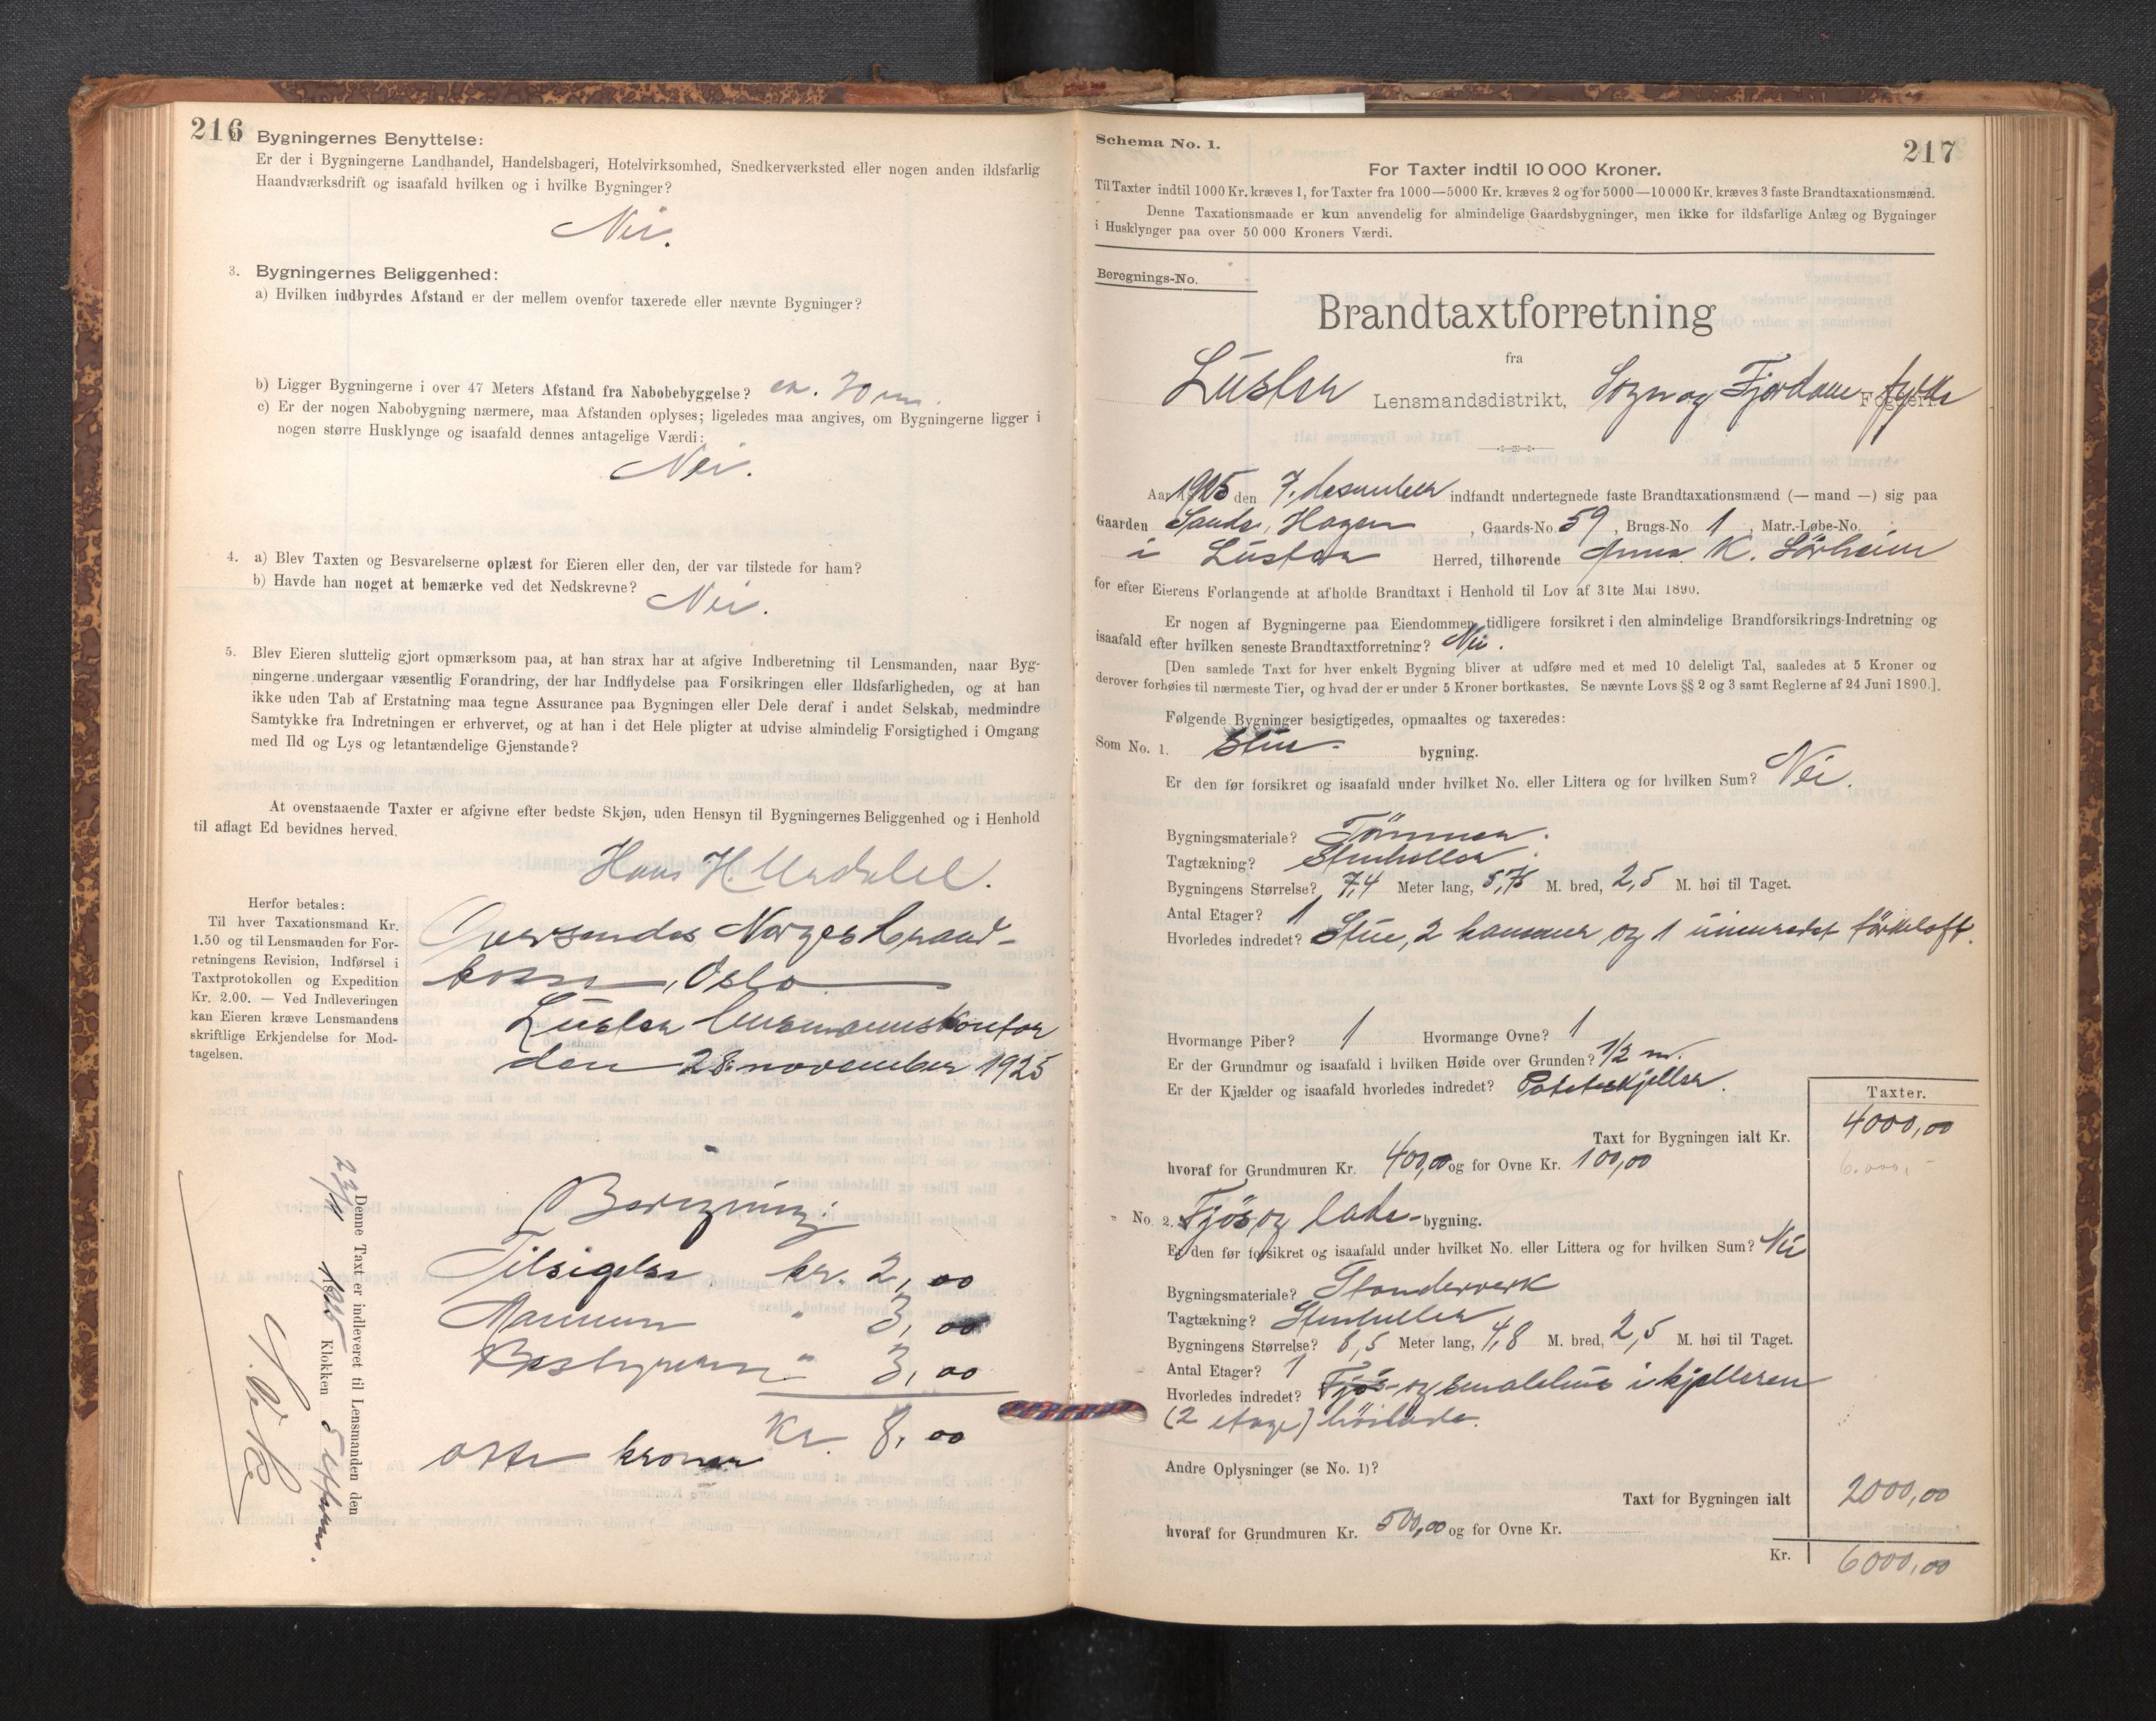 216
Bygningernes Benyttelse:
Er der i Bygningerne Landhandel, Handelsbageri, Hotelvirksomhed, Snedkerværksted eller nogen anden ildsfarlig
Haandværksdrift og isaafald hvilken og i hvilke Bygninger?
Nei.
3. Bygningernes Beliggenhed:
a) Hvilken indbyrdes Afstand er der mellem ovenfor taxerede eller nævnte Bygninger?
b) Ligger Bygningerne i over 47 Meters Afstand fra Nabobebyggelse? ca. 70 m.
c) Er der nogen Nabobygning nærmere, maa Afstanden oplyses; ligeledes maa angives, om Bygningerne ligger i
nogen større Husklynge og isaafald dennes antagelige Værdi:
Nei.
4. a) Blev Taxten og Besvarelserne oplæst for Eieren eller den, der var tilstede for ham?
b) Havde han noget at bemærke ved det Nedskrevne? Nei.
5. Blev Eieren sluttelig gjort opmærksom paa, at han strax har at afgive Indberetning til Lensmanden, naar Byg-
ningerne undergaar væsentlig Forandring, der har Indflydelse paa Forsikringen eller Ildsfarligheden, og at han
ikke uden Tab af Erstatning maa tegne Assurance paa Bygningen eller Dele deraf i andet Selskab, medmindre
Samtykke fra Indretningen er erhvervet, og at han i det Hele pligter at udvise almindelig Forsigtighed i Omgang
med Ild og Lys og letantændelige Gjenstande?
At ovenstaaende Taxter er afgivne efter bedste Skjøn, uden Hensyn til Bygningernes Beliggenhed og i Henhold
til aflagt Ed bevidnes herved.
Hans H.
Herfor betales:
Til hver Taxationsmand Kr.
1.50 og til Lensmanden for For-
retningens Revision, Indførsel i
Taxtprotokollen og Expedition
Kr. 2.00. — Ved Indleveringen
kan Eieren kræve Lensmandens
skriftlige Erkjendelse for Mod-
tagelsen.
Oversendes Norges brand-
kasse, Oslo
Luster lensmannskontor
den 28. november 1925
Beregning:
Tilsigelse kr. 2,00
Mannen " 3,00
Bestyreren " 3,00
Kr. 8,00
otte kroner
Denne Taxt er indleveret til Lensmanden den
1925 Klokken 5 efterm.
217
Schema No. 1.
For Taxter indtil 10 000 Kroner.
Til Taxter indtil 1000 Kr. kræves 1, for Taxter fra 1000—5000 Kr. kræves 2 og for 5000—10 000 Kr. kræves 3 faste Brandtaxationsmænd.
Denne Taxationsmaade er kun anvendelig for almindelige Gaardsbygninger, men ikke for ildsfarlige Anlæg og Bygninger
i Husklynger paa over 50 000 Kroners Værdi.
Beregnings-No.
Brandtaxtforretning
fra
Luster Lensmandsdistrikt, Sogn og Fjordane fylke Fogderi.
Aar 1925 den 7. desember indfandt undertegnede faste Brandtaxationsmænd (— mand —) sig paa
Gaarden Sande, Hagen, Gaards-No. 59, Brugs-No. 1, Matr.-Løbe-No.
i Luster Herred, tilhørende Anna K. Sørheim
for efter Eierens Forlangende at afholde Brandtaxt i Henhold til Lov af 31te Mai 1890.
Er nogen af Bygningerne paa Eiendommen tidligere forsikret i den almindelige Brandforsikrings-Indretning og
isaafald efter hvilken seneste Brandtaxtforretning? Nei.
[Den samlede Taxt for hver enkelt Bygning bliver at udføre med et med 10 deleligt Tal, saaledes at 5 Kroner og
derover forhøies til nærmeste Tier, og hvad der er under 5 Kroner bortkastes. Se nævnte Lovs §§ 2 og 3 samt Reglerne af 24 Juni 1890.].
Følgende Bygninger besigtigedes, opmaaltes og taxeredes:
Som No. 1. Stue- bygning.
Er den før forsikret og isaafald under hvilket No. eller Littera og for hvilken Sum? Nei.
Bygningsmateriale? Tømmer.
Tagtækning? Stenheller.
Bygningens Størrelse? 7,4 Meter lang, 5,75 M. bred, 2,5 M. høi til Taget.
Antal Etager? 1
Hvorledes indredet? Stue, 2 kammer og 1 uinnredet förkeloft.
Hvormange Piber? 1 Hvormange Ovne? 1
Er der Grundmur og isaafald i hvilken Høide over Grunden? 1/2 m.
Er der Kjælder og isaafald hvorledes indredet? Potetkjeller.
Taxter.
Taxt for Bygningen ialt Kr. 4000,00
hvoraf for Grundmuren Kr. 400,00 og for Ovne Kr. 100,00
6.000,-
" No. 2. Fjös og lade- bygning.
Er den før forsikret og isaafald under hvilket No. eller Littera og for hvilken Sum? Nei
Bygningsmateriale? Standerverk
Tagtækning? Stenheller
Bygningens Størrelse? 6,5 Meter lang, 4,8 M. bred, 2,5 M. høi til Taget.
Antal Etager? 1
Hvorledes indredet? Fjøs- og smalehus i kjelleren
(2 etage) höilade.
Andre Oplysninger (se No. 1)?
Taxt for Bygningen ialt 2000,00
hvoraf for Grundmuren Kr. 500,00 og for Ovne Kr.
Kr. 6000,00